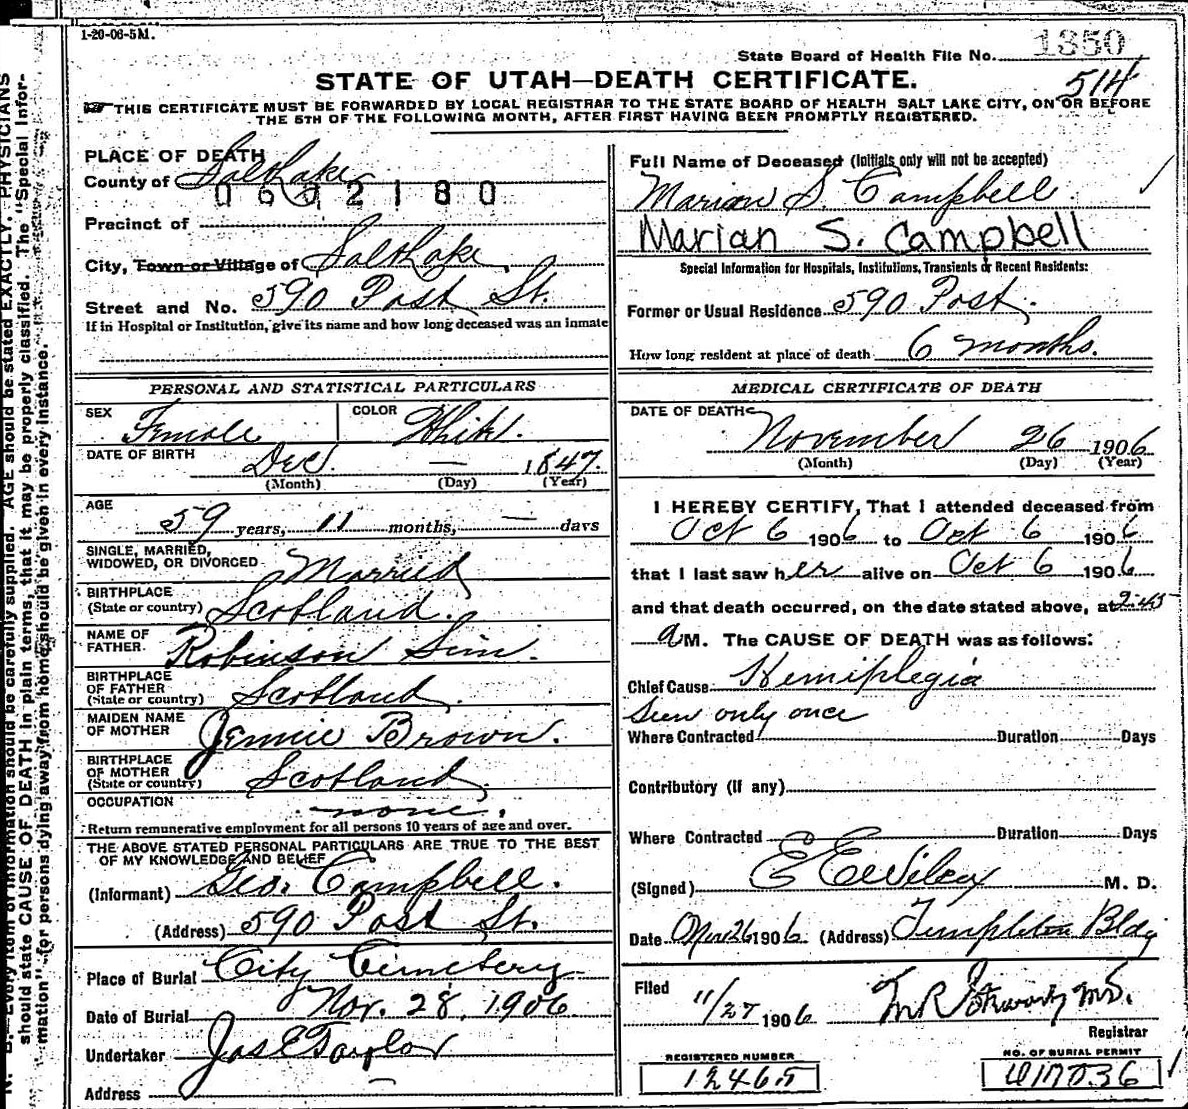 1-20-06-5M.
State Board of Health File No. 1350
514
STATE OF UTAH—DEATH CERTIFICATE.
THIS CERTIFICATE MUST BE FORWARDED BY LOCAL REGISTRAR TO THE STATE BOARD OF HEALTH SALT LAKE CITY, ON OR BEFORE
THE 5TH OF THE FOLLOWING MONTH, AFTER FIRST HAVING BEEN PROMPTLY REGISTERED.
PLACE OF DEATH
County of Salt Lake
0602180
Precinct of
City, Town or Village of Salt Lake
Street and No. 590 Post St.
If in Hospital or Institution, give its name and how long deceased was an inmate
PERSONAL AND STATISTICAL PARTICULARS
SEX Female COLOR White.
DATE OF BIRTH Dec. — 1847.
(Month) (Day) (Year)
AGE 59 years, 11 months, — days
SINGLE, MARRIED,
WIDOWED, OR DIVORCED Married
BIRTHPLACE
(State or country) Scotland.
NAME OF
FATHER. Robinson Sim.
BIRTHPLACE
OF FATHER
(State or country) Scotland.
MAIDEN NAME
OF MOTHER Jennie Brown.
BIRTHPLACE
OF MOTHER
(State or country) Scotland.
OCCUPATION none.
Return remunerative employment for all persons 10 years of age and over.
THE ABOVE STATED PERSONAL PARTICULARS ARE TRUE TO THE BEST
OF MY KNOWLEDGE AND BELIEF
(Informant) Geo. Campbell.
(Address) 590 Post St.
Place of Burial City Cemetery
Date of Burial Nov. 28, 1906
Undertaker Jos E Taylor
Address —
Full Name of Deceased (Initials only will not be accepted)
Marian S. Campbell.
Marian S. Campbell
Special Information for Hospitals, Institutions, Transients or Recent Residents:
Former or Usual Residence 590 Post.
How long resident at place of death 6 months.
MEDICAL CERTIFICATE OF DEATH
DATE OF DEATH November 26 1906
(Month) (Day) (Year)
I HEREBY CERTIFY, That I attended deceased from
Oct 6 1906 to Oct 6 1906
that I last saw her alive on Oct 6 1906
and that death occurred, on the date stated above, at 2:45
a M. The CAUSE OF DEATH was as follows:
Chief Cause Hemiplegia
Seen only once
Where Contracted Duration Days
Contributory (if any)
Where Contracted Duration Days
(Signed) E E Wilcox M. D.
Date Nov 26 1906 (Address) Templeton Bldg
Filed 11/27 1906
Registrar
REGISTERED NUMBER
12465
NO. OF BURIAL PERMIT
should state CAUSE OF DEATH in plain terms, that it may be properly classified. The "Special Infor-
mation" for persons dying away from home should be given in every instance.